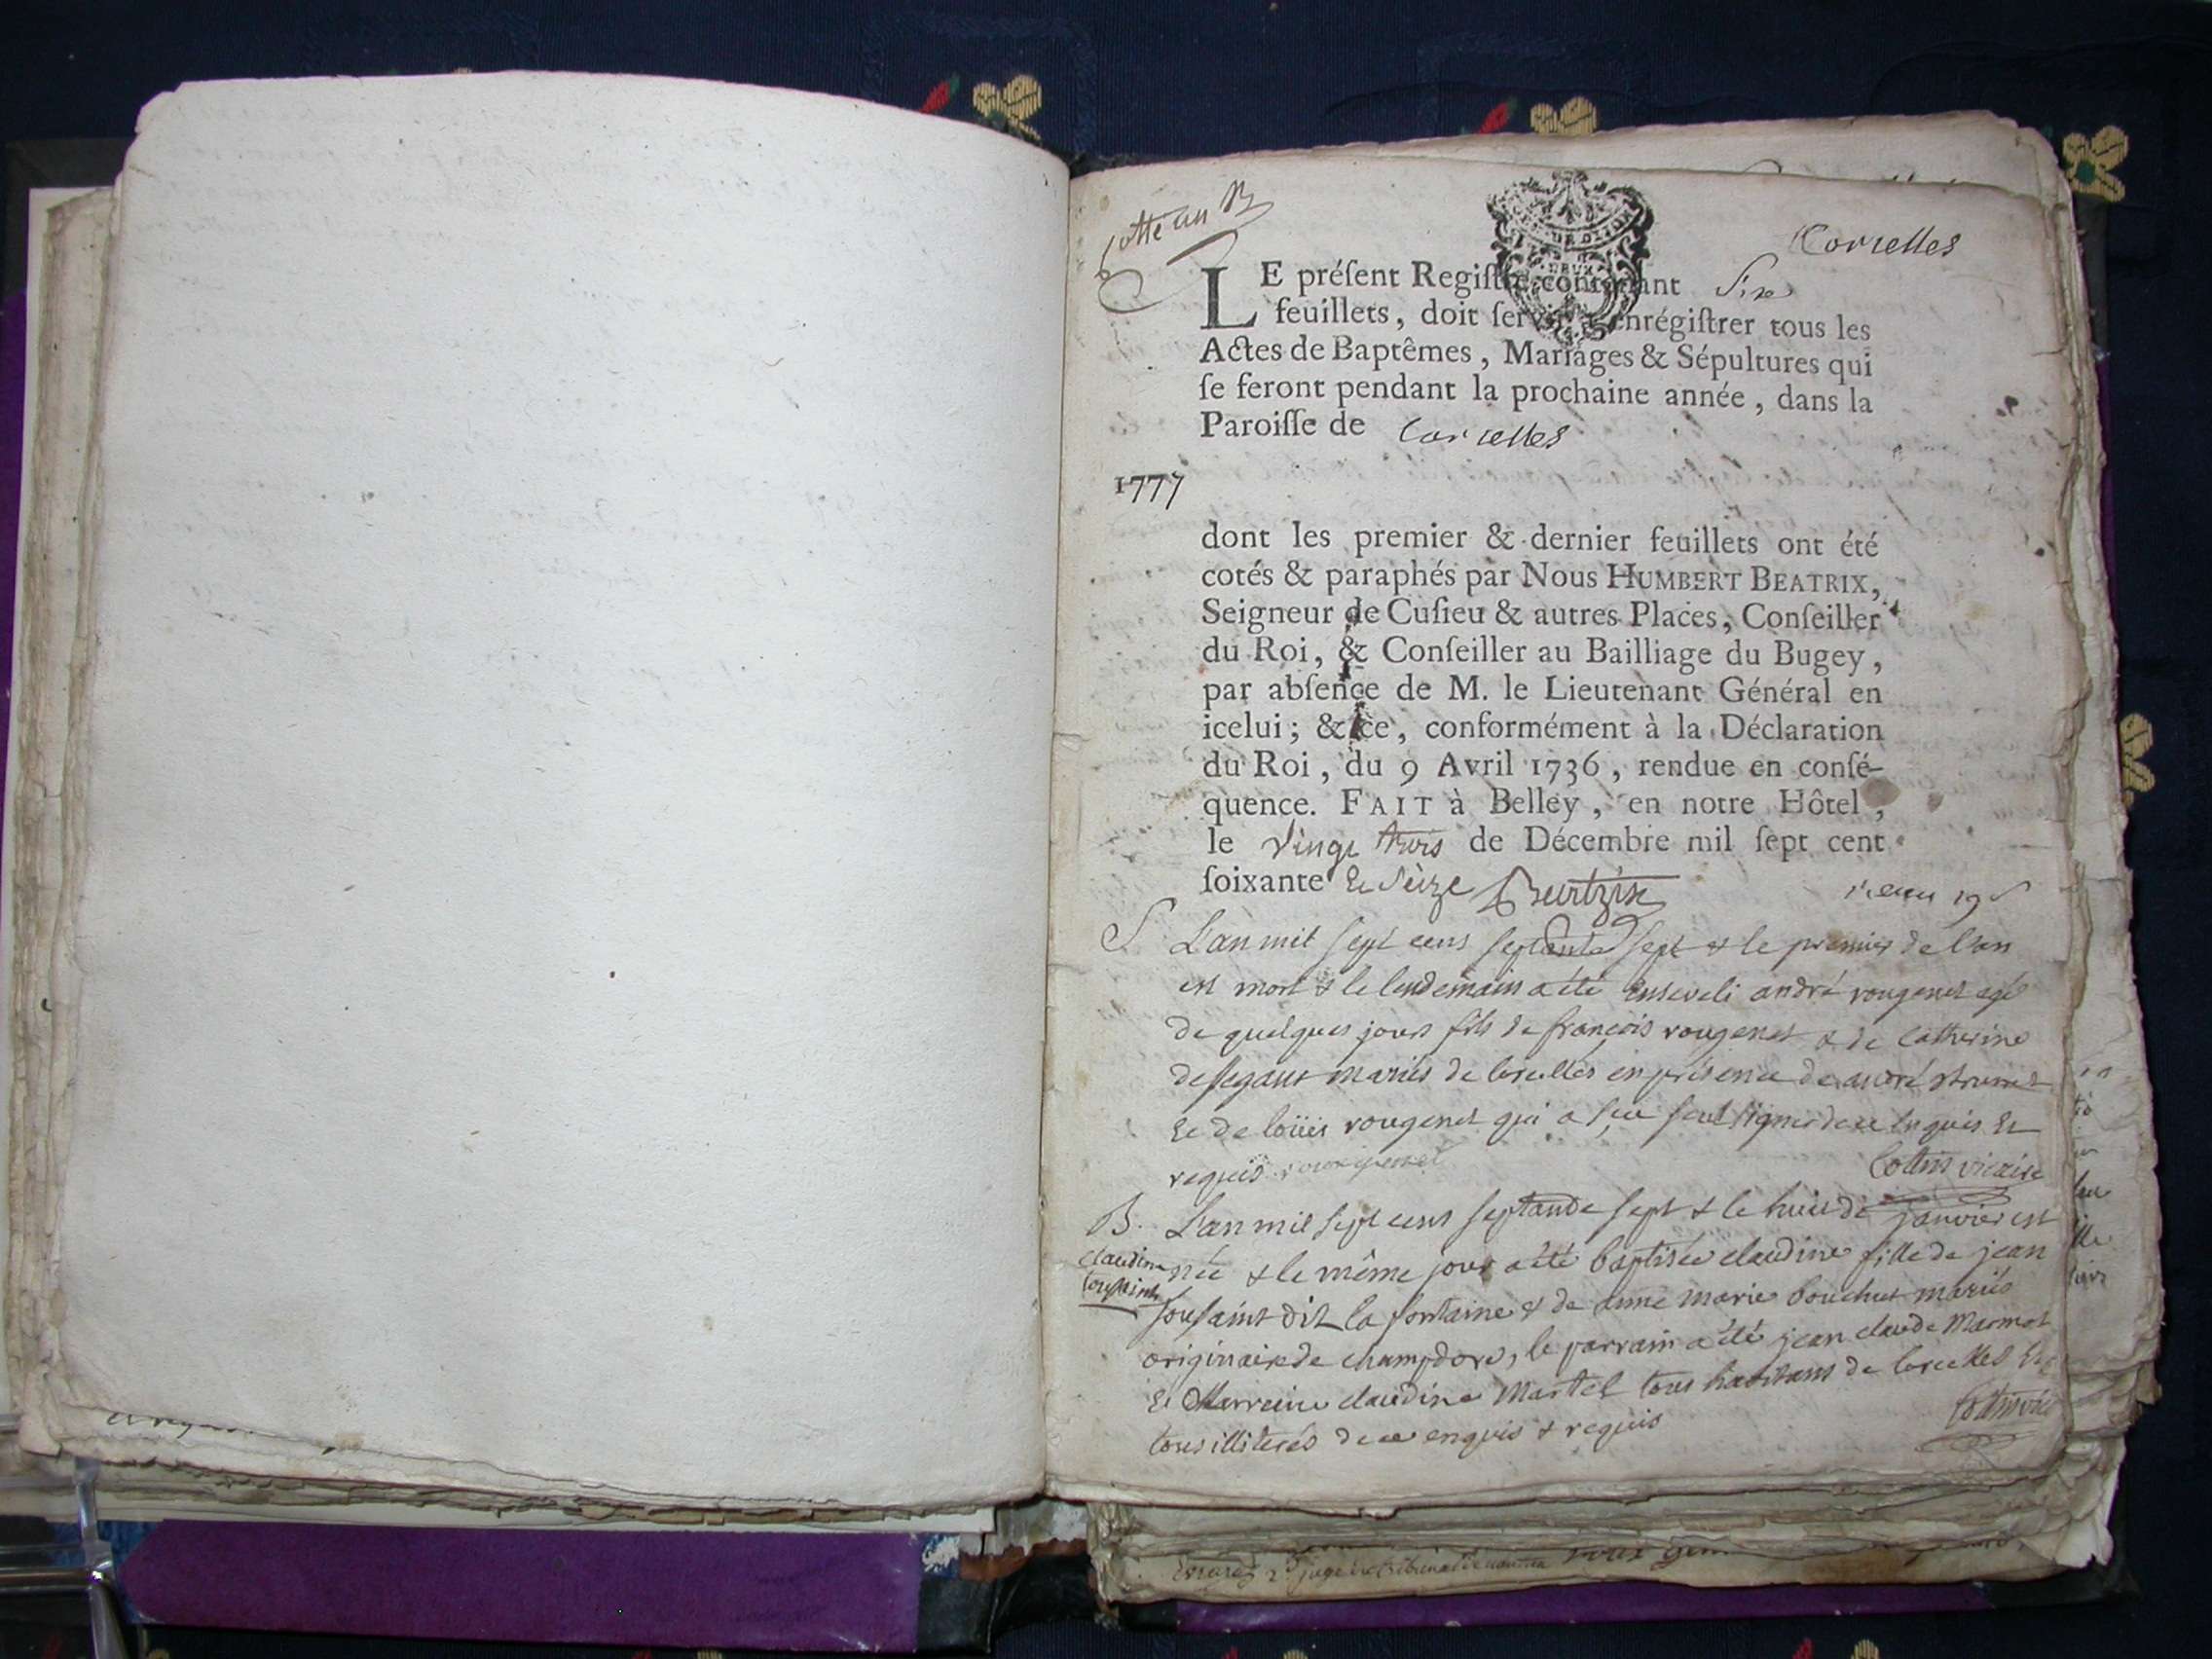 Cotté au B
Corcelles
LE préſent Regiſtre contenant Six
feuillets, doit ſervir à enrégiſtrer tous les
Actes de Baptêmes, Mariages & Sépultures qui
ſe feront pendant la prochaine année, dans la
Paroiſſe de Corcelles
1777
dont les premier & dernier feuillets ont été
cotés & paraphés par Nous HUMBERT BEATRIX,
Seigneur de Cuſieu & autres Places, Conſeiller
du Roi, & Conſeiller au Bailliage du Bugey,
par abſence de M. le Lieutenant Général en
icelui; & ce, conformément à la Déclaration
du Roi, du 9 Avril 1736, rendue en conſé-
quence. FAIT à Belley, en notre Hôtel,
le vingt trois de Décembre mil ſept cent
ſoixante et seize Beatrix
S L'an mil sept cens septante sept & le premier de l'an
est mort & le lendemain a été enseveli andré rougenet agé
de quelques jours fils de françois rougenet & de Catherine
desegaux mariés de Corcelles en présence de andré
Et de loüis rougenet qui a sçu seul signer de ce enquis Et
requis rougemet Cottin vicaire
B. L'an mil sept cens septante sept & le huit de janvier est
claudine née & le même jour a été baptisée claudine fille de jean
toussaint tousaint dit la fontaine & de anne marie bouchet mariés
originaire de champdore, le parrain a été jean claude Marmet
Et Marreine claudine Martel tous habitans de Corcelles Et
tous illiterés de ce enquis & requis Cottin vic